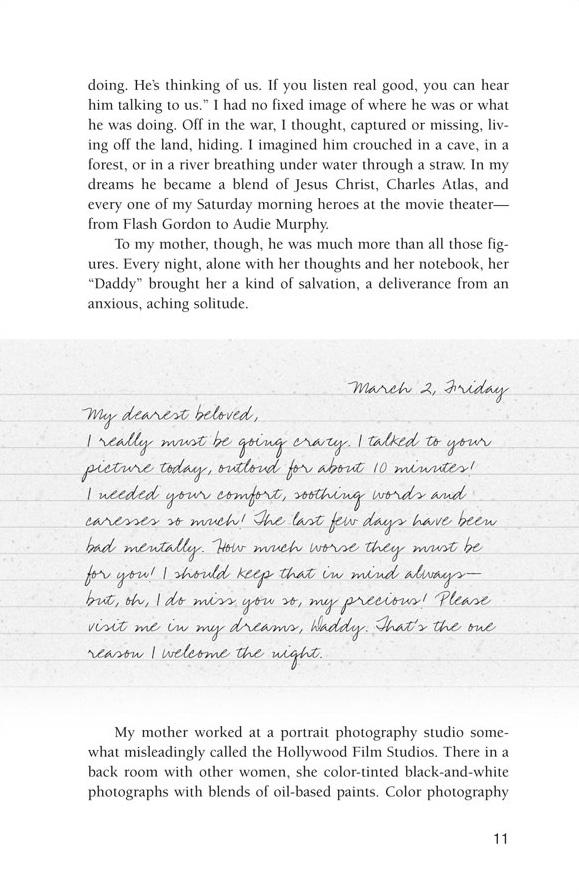 doing. He’s thinking of us. If you listen real good, you can hear
him talking to us.” I had no fixed image of where he was or what
he was doing. Off in the war, I thought, captured or missing, liv-
ing off the land, hiding. I imagined him crouched in a cave, in a
forest, or in a river breathing under water through a straw. In my
dreams he became a blend of Jesus Christ, Charles Atlas, and
every one of my Saturday morning heroes at the movie theater—
from Flash Gordon to Audie Murphy.
To my mother, though, he was much more than all those fig-
ures. Every night, alone with her thoughts and her notebook, her
“Daddy” brought her a kind of salvation, a deliverance from an
anxious, aching solitude.
March 2, Friday
My dearest beloved,
I really must be going crazy. I talked to your
picture today, outloud for about 10 minutes!
I needed your comfort, soothing words and
caresses so much! The last few days have been
bad mentally. How much worse they must be
for you! I should keep that in mind always—
but, oh, I do miss you so, my precious! Please
visit me in my dreams, Daddy. That’s the one
reason I welcome the night.
My mother worked at a portrait photography studio some-
what misleadingly called the Hollywood Film Studios. There in a
back room with other women, she color-tinted black-and-white
photographs with blends of oil-based paints. Color photography
11